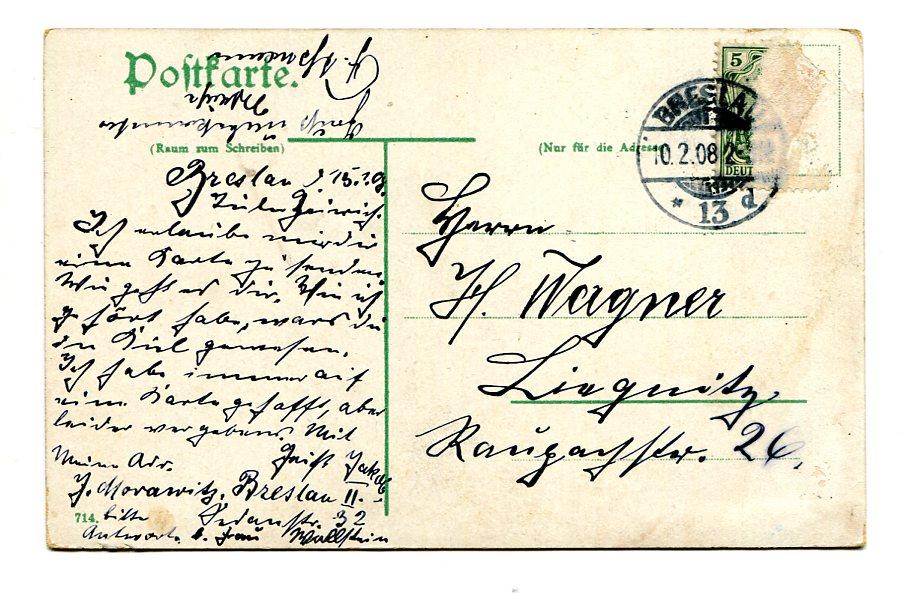 Postkarte.
(Raum zum Schreiben)
(Nur für die Adresse)
5
DEUT
BRESLAU
10.2.08 2-
* 13 d
Breslau d.
Ich erlaube mir dir
eine Karte zu senden.
Wie geht es dir. Wie ich
gehört habe, warst du
in Kiel gewesen.
Ich habe immer auf
eine Karte gehofft, aber
leider vergebens. Mit
Gruß Jakob
Meine Adr.
J. Morawitz, Breslau II.
Sedanstr. 32
bitte
Antwort. b. Frau Wollstein
714.
Herrn
H. Wagner
Liegnitz
Raupachstr. 26.